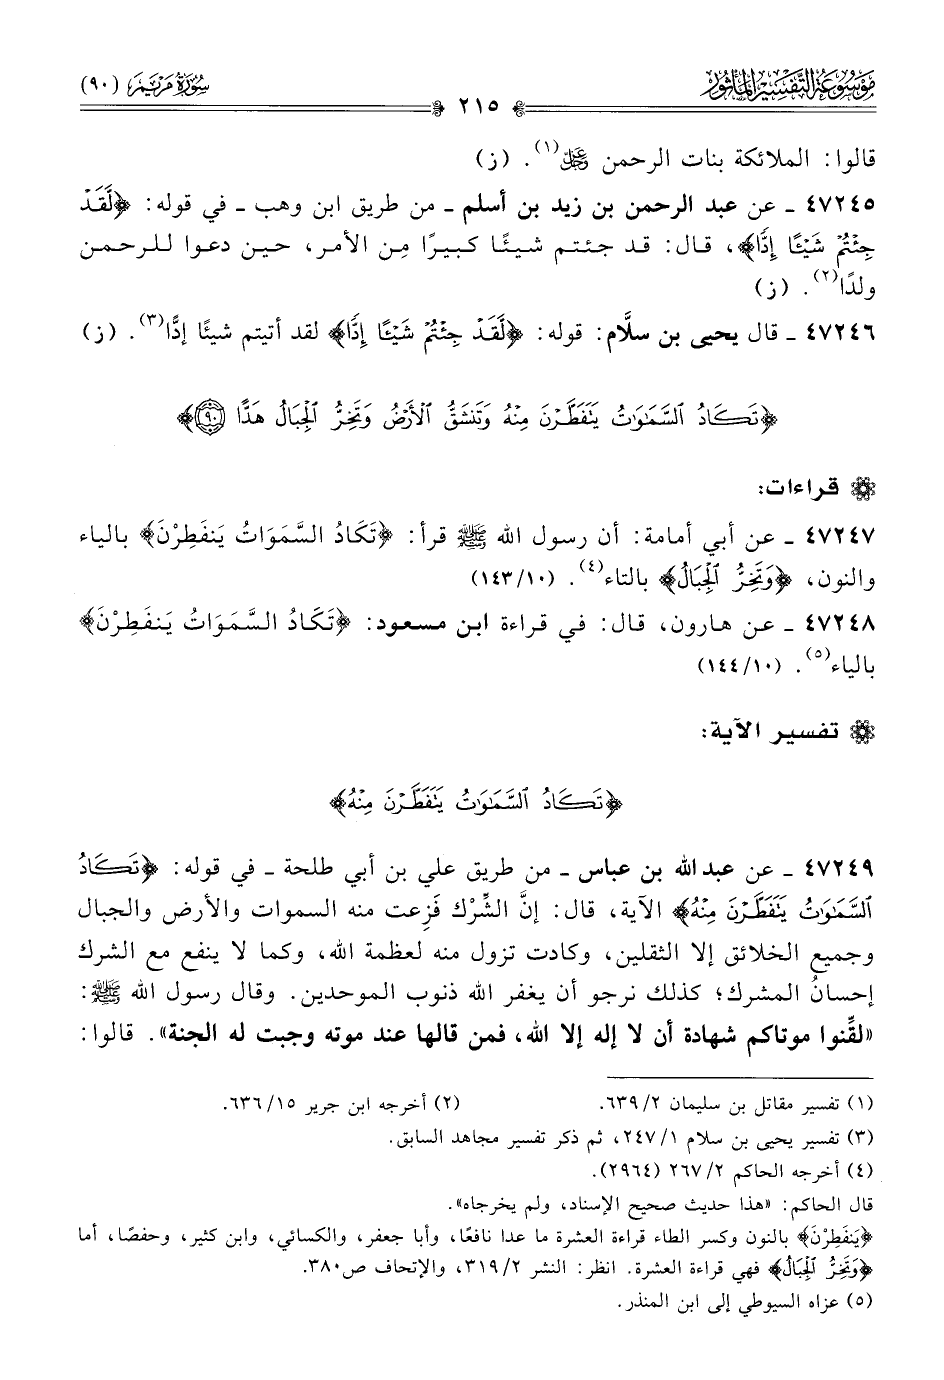 مَوْسُوعَةُ التَّفْسِيرِ المَأْثُورِ
سُورَةُ مَرْيَمَ (٩٠)
٢١٥
قالوا: الملائكة بنات الرحمن ﷿(١). (ز)
٤٧٢٤٥ ـ عن عبد الرحمن بن زيد بن أسلم ـ من طريق ابن وهب ـ في قوله: ﴿لَّقَدْ
جِئْتُمْ شَيْـًٔا إِدًّا﴾، قال: قد جئتم شيئًا كبيرًا مِن الأمر، حين دعوا للرحمن
ولدًا(٢). (ز)
٤٧٢٤٦ ـ قال يحيى بن سلَّام: قوله: ﴿لَّقَدْ جِئْتُمْ شَيْـًٔا إِدًّا﴾ لقد أتيتم شيئًا إدًّا(٣). (ز)
﴿تَكَادُ السَّمَـٰوَٰتُ يَتَفَطَّرْنَ مِنْهُ وَتَنشَقُّ ٱلْأَرْضُ وَتَخِرُّ ٱلْجِبَالُ هَدًّا ۝٩٠﴾
قراءات:
٤٧٢٤٧ ـ عن أبي أمامة: أن رسول الله ﷺ قرأ: ﴿تَكَادُ السَّمَوَاتُ يَنفَطِرْنَ﴾ بالياء
والنون، ﴿وَتَخِرُّ ٱلْجِبَالُ﴾ بالتاء(٤). (١٤٣/١٠)
٤٧٢٤٨ ـ عن هارون، قال: في قراءة ابن مسعود: ﴿تَكَادُ السَّمَوَاتُ يَنفَطِرْنَ﴾
بالياء(٥). (١٤٤/١٠)
تفسير الآية:
﴿تَكَادُ ٱلسَّمَـٰوَٰتُ يَتَفَطَّرْنَ مِنْهُ﴾
٤٧٢٤٩ ـ عن عبد الله بن عباس ـ من طريق علي بن أبي طلحة ـ في قوله: ﴿تَكَادُ
ٱلسَّمَـٰوَٰتُ يَتَفَطَّرْنَ مِنْهُ﴾ الآية، قال: إنَّ الشِّرْك فَزِعت منه السموات والأرض والجبال
وجميع الخلائق إلا الثقلين، وكادت تزول منه لعظمة الله، وكما لا ينفع مع الشرك
إحسانُ المشرك؛ كذلك نرجو أن يغفر الله ذنوب الموحدين. وقال رسول الله ﷺ:
«لقِّنوا موتاكم شهادة أن لا إله إلا الله، فمن قالها عند موته وجبت له الجنة». قالوا:
(١) تفسير مقاتل بن سليمان ٦٣٩/٢. (٢) أخرجه ابن جرير ٦٣٦/١٥.
(٣) تفسير يحيى بن سلام ٢٤٧/١، ثم ذكر تفسير مجاهد السابق.
(٤) أخرجه الحاكم ٢٦٧/٢ (٢٩٦٤).
قال الحاكم: «هذا حديث صحيح الإسناد، ولم يخرجاه».
﴿يَنفَطِرْنَ﴾ بالنون وكسر الطاء قراءة العشرة ما عدا نافعًا، وأبا جعفر، والكسائي، وابن كثير، وحفصًا، أما
﴿وَتَخِرُّ ٱلْجِبَالُ﴾ فهي قراءة العشرة. انظر: النشر ٣١٩/٢، والإتحاف ص٣٨٠.
(٥) عزاه السيوطي إلى ابن المنذر.